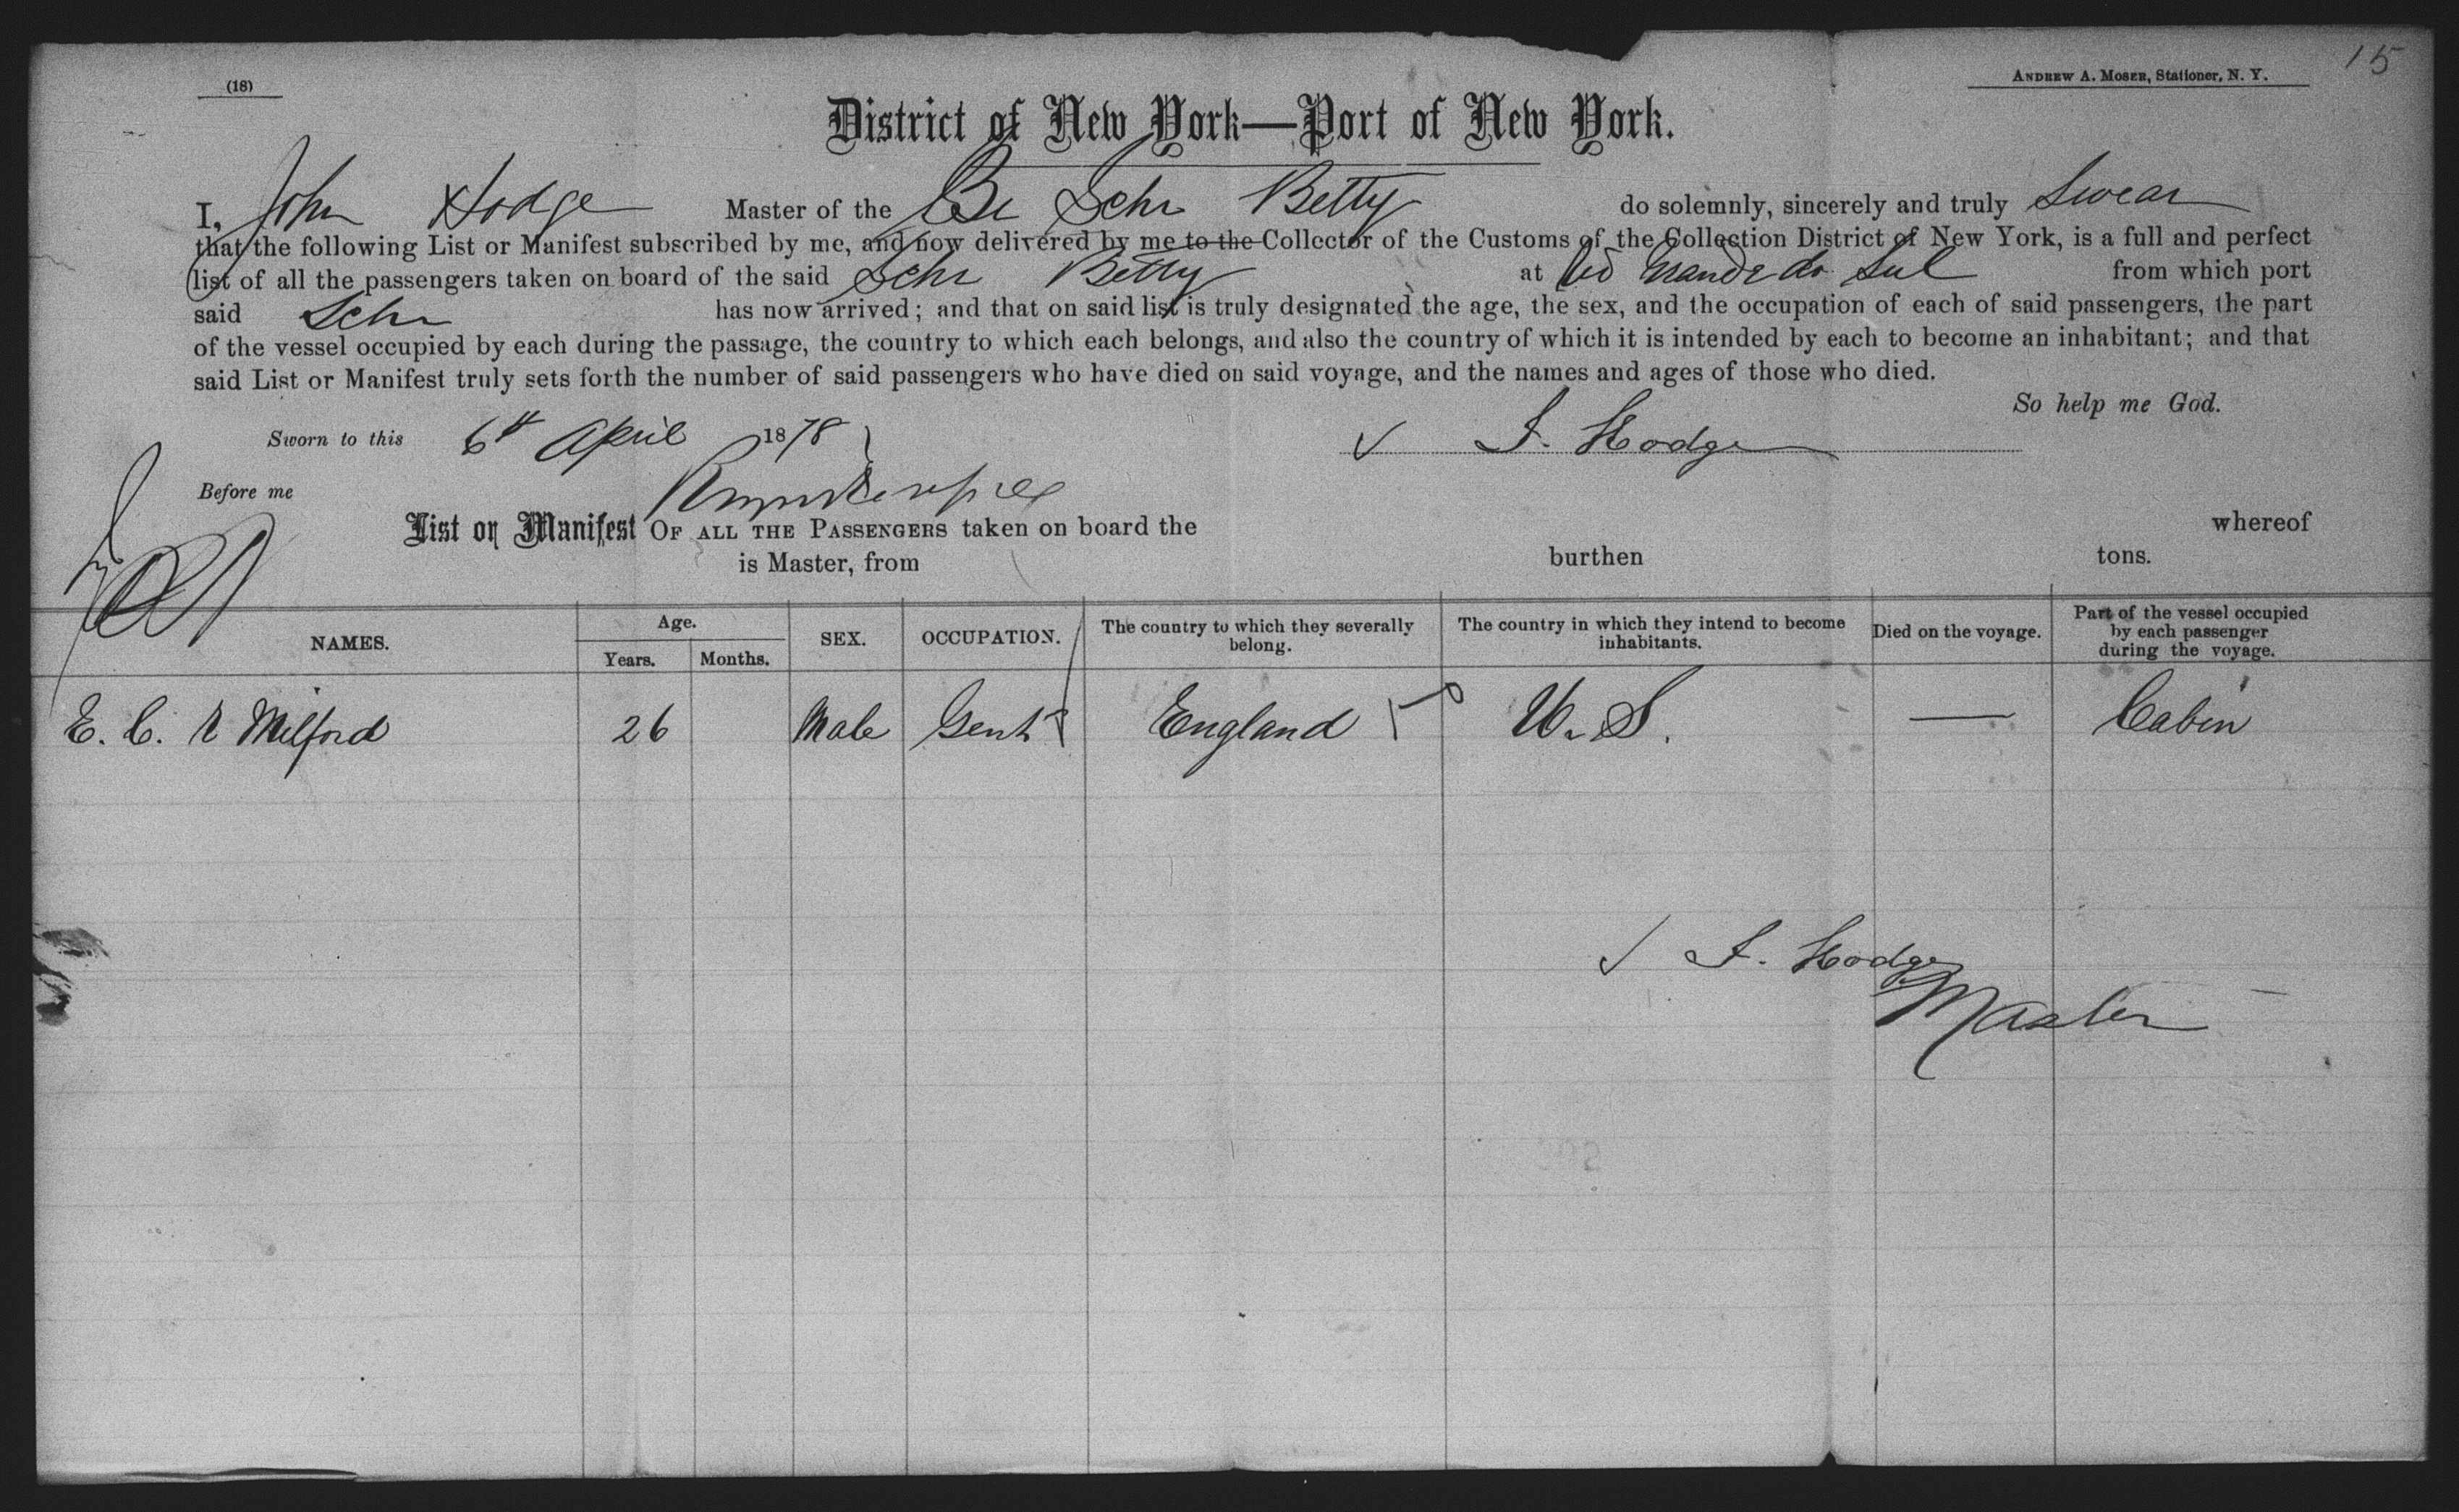 15
(18)
ANDREW A. MOSER, Stationer, N. Y.
District of New York—Port of New York.
I, John Hodge Master of the Br Schr Betty do solemnly, sincerely and truly Swear
that the following List or Manifest subscribed by me, and now delivered by me to the Collector of the Customs of the Collection District of New York, is a full and perfect
list of all the passengers taken on board of the said Schr Betty at Rio Grande do Sul from which port
said Schr has now arrived; and that on said list is truly designated the age, the sex, and the occupation of each of said passengers, the part
of the vessel occupied by each during the passage, the country to which each belongs, and also the country of which it is intended by each to become an inhabitant; and that
said List or Manifest truly sets forth the number of said passengers who have died on said voyage, and the names and ages of those who died.
So help me God.
Sworn to this 6th April 1878 J. Hodge
Before me
List or Manifest OF ALL THE PASSENGERS taken on board the whereof
is Master, from burthen tons.
NAMES. Age. Years. Months. SEX. OCCUPATION. The country to which they severally belong. The country in which they intend to become inhabitants. Died on the voyage. Part of the vessel occupied by each passenger during the voyage.
E. C. Milford 26 Male Gent England U. S. — Cabin
J. Hodge
Master